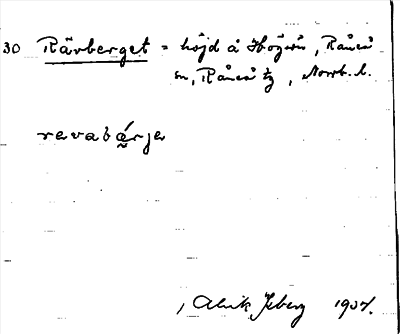 30 Rävberget = höjd å Högsön, Råneå
sn, Råneå tg, Norrb. l.
revabärje
, Alvik, Isberg 1937.